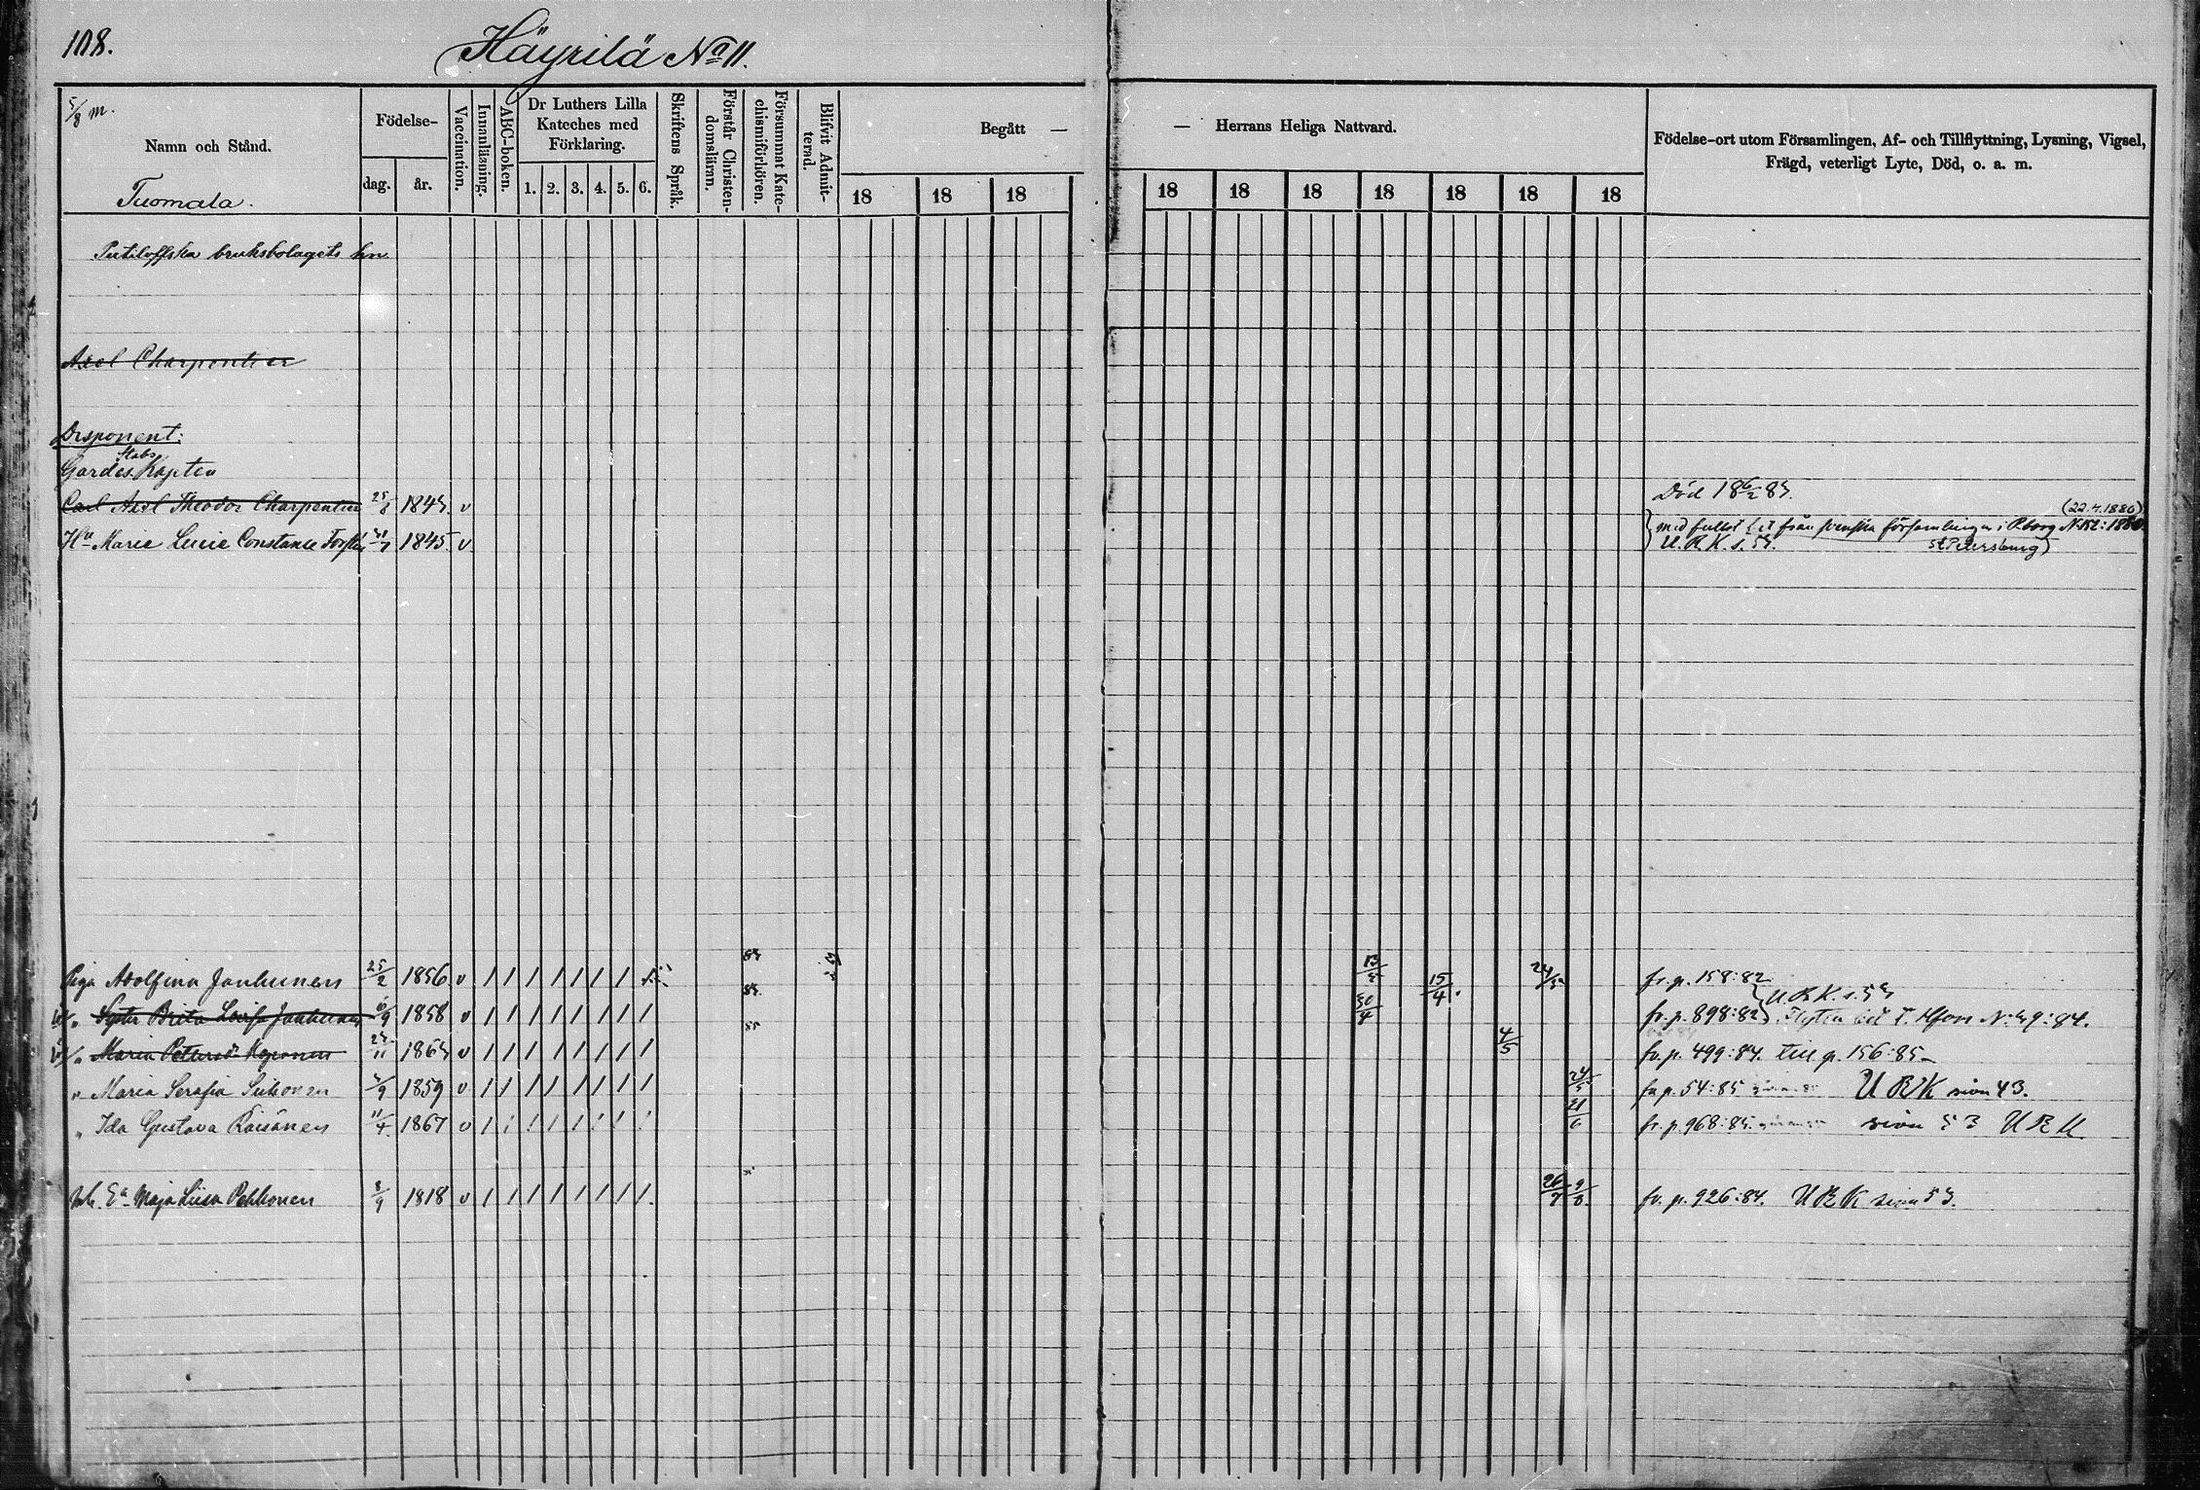 108.
Häyrilä No 11.
5/8 m.
Namn och Stånd.
Tuomala.
Födelse-
dag.
år.
Vaccination.
Innanläsning.
ABC-boken.
Dr Luthers Lilla
Kateches med
Förklaring.
1. 2. 3. 4. 5. 6.
Skriftens Språk.
Förstår Christen-
domsläran.
Försummat Kate-
chismiförhören.
Blifvit Admit-
terad.
Begått —
18 18 18
— Herrans Heliga Nattvard.
18 18 18 18 18 18 18
Födelse-ort utom Församlingen, Af- och Tillflyttning, Lysning, Vigsel,
Frägd, veterligt Lyte, Död, o. a. m.
Putiloffska bruksbolagets
Axel Charpentier
Disponent:
Stabs
Gardes Kapten
Carl Axel Theodor Charpentier 1843. v Död 18 6/2 83.
(22.4.1880)
Hu Marie Lucie Constance 1845 v från svenska församlingen i
U.R.K. s. 53. St Petersburg)
Piga Adolfina Janhunen 25/2 1856 v / / / / / / / / 13/5 15/4 24/5 fr. p. 158:82
U.R.K. s. 53
" Syster Brita Lovisa Janhunen 1858 v / / / / / / / / 30/4 fr. p. 898:82 N: 49:84.
" Maria Petersd. Koponen 1863 v / / / / / / / / 4/5 fr. p. 499:84. till p. 156:85
" Maria Serafia 1859 v / / / / / / / / 24/5 fr p. 54:85 U R K sivu 43.
" Ida Gustava Räisänen 11/4 1867 v / / / / / / / / 21/6 fr. p. 968:85. sivu 53 U R K.
Maja Liisa Pekkonen 8/9 1818 v / / / / / / / / 26/7 9/8. fr. p. 926:84. U R K sivu 53.